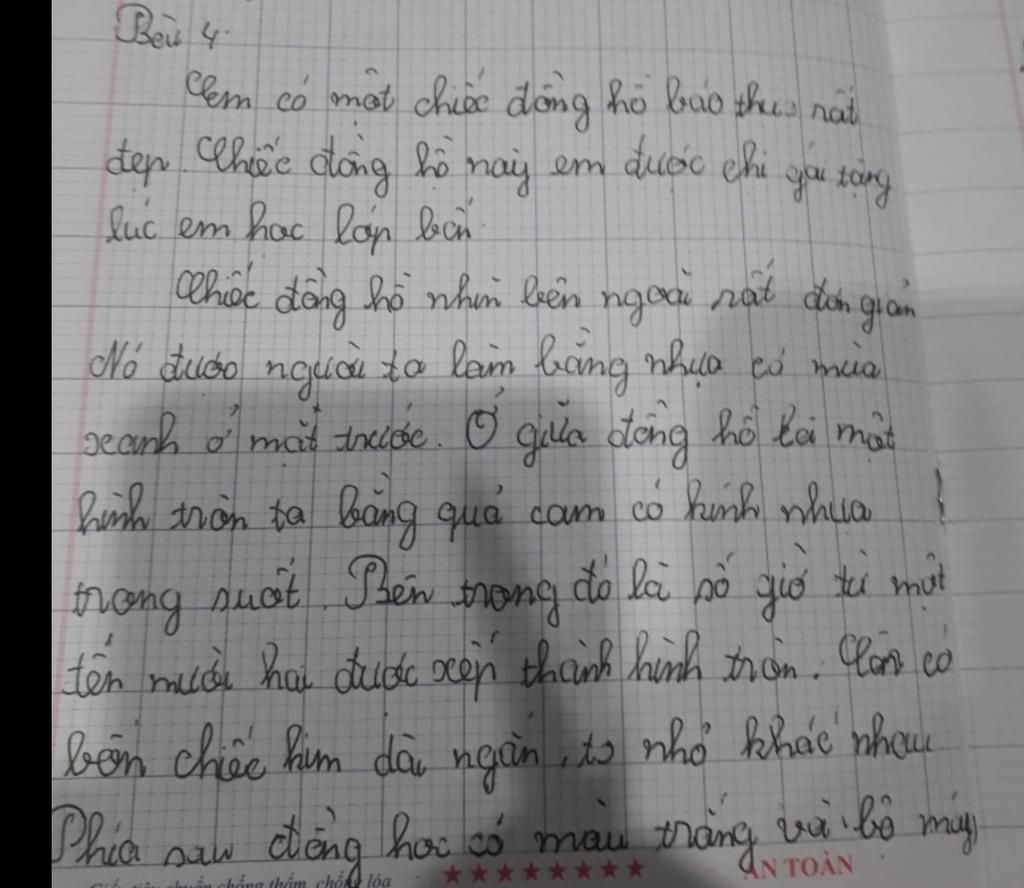 Bài 4.
Em có một chiếc đồng hồ báo thức rất
đẹp. Chiếc đồng hồ này em được chị gái tặng
lúc em học lớp bốn.
Chiếc đồng hồ nhìn bên ngoài rất đơn giản
Nó được người ta làm bằng nhựa có màu
xanh ở mặt trước. Ở giữa đồng hồ là một
hình tròn to bằng quả cam có kính nhựa
trong suốt. Bên trong đó là số giờ từ một
tến mười hai được xếp thành hình tròn. Còn có
bốn chiếc kim dài ngắn, to nhỏ khác nhau
Phía sau đồng học có màu trắng và bộ máy
chuẩn chống thấm, chống lóa
★★★★★★★★ AN TOÀN